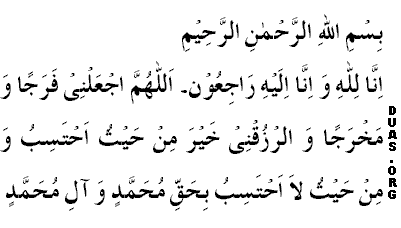 بِسْمِ اللهِ الرَّحْمٰنِ الرَّحِيْمِ
اِنَّا لِلّٰهِ وَ اِنَّا اِلَيْهِ رَاجِعُوْنَ۔ اَللّٰهُمَّ اجْعَلْنِىْ فَرَجًا وَ
مَخْرَجًا وَ الرْزُقْنِىْ خَيْرَ مِنْ حَيْثُ اَحْتَسِبُ وَ
مِنْ حَيْثُ لاَ اَحْتَسِبُ بِحَقِّ مُحَمَّدٍ وَ آلِ مُحَمَّدٍ
DUAS.ORG